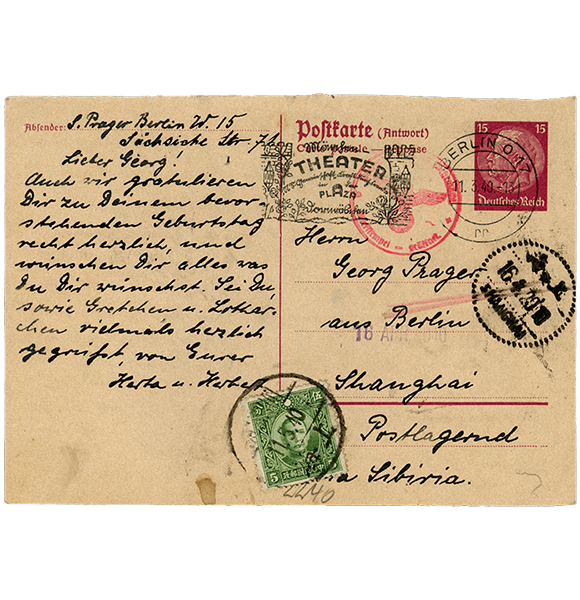 Absender: S. Prager Berlin W. 15
Sächsische Str. 7
Lieber Georg!
Auch wir gratulieren
Dir zu Deinem bevor-
stehenden Geburtstag
recht herzlich, und
wünschen Dir alles was
Du Dir wünschst. Sei Du
sowie Gretchen u. Lothar-
chen vielmals herzlich
gegrüßt, von Eurer
Herta u. Herbert
Postkarte (Antwort)
THEATER
PLAZA
BERLIN O 17
15 15
Deutsches Reich
Herrn
Georg Prager
aus Berlin
16 APR
Shanghai
Postlagernd
Sibiria.
SHANGHAI
5
2240